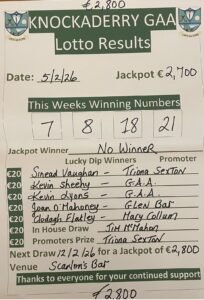 €2,800
KNOCKADERRY GAA
Lotto Results
Date: 5/2/26 Jackpot € 2,700
This Weeks Winning Numbers
7 8 18 21
Jackpot Winner No Winner
Lucky Dip Winners Promoter
€20 Sinead Vaughan - Triona Sexton
€20 Kevin Sheehy - G.A.A.
€20 Kevin Lyons - G.A.A.
€20 Joan O'Mahoney - Glen Bar
€20 Clodagh Flatley - Mary Collum
€20 In House Draw Jim McMahon
€20 Promoters Prize Triona Sexton
Next Draw 12/2/26 for a Jackpot of €2,800
Venue Scanlon's Bar
Thanks to everyone for your continued support
€2,800